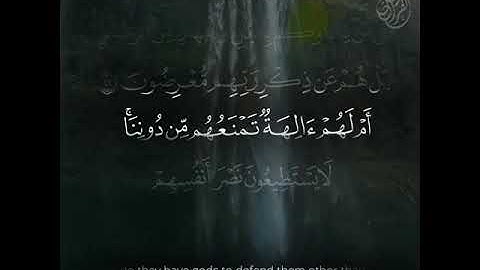 بَلْ هُمْ عَن ذِكْرِ رَبِّهِم مُّعْرِضُونَ
أَمْ لَهُمْ ءَالِهَةٌ تَمْنَعُهُم مِّن دُونِنَا ۚ
لَا يَسْتَطِيعُونَ نَصْرَ أَنفُسِهِمْ
they have gods to defend them other